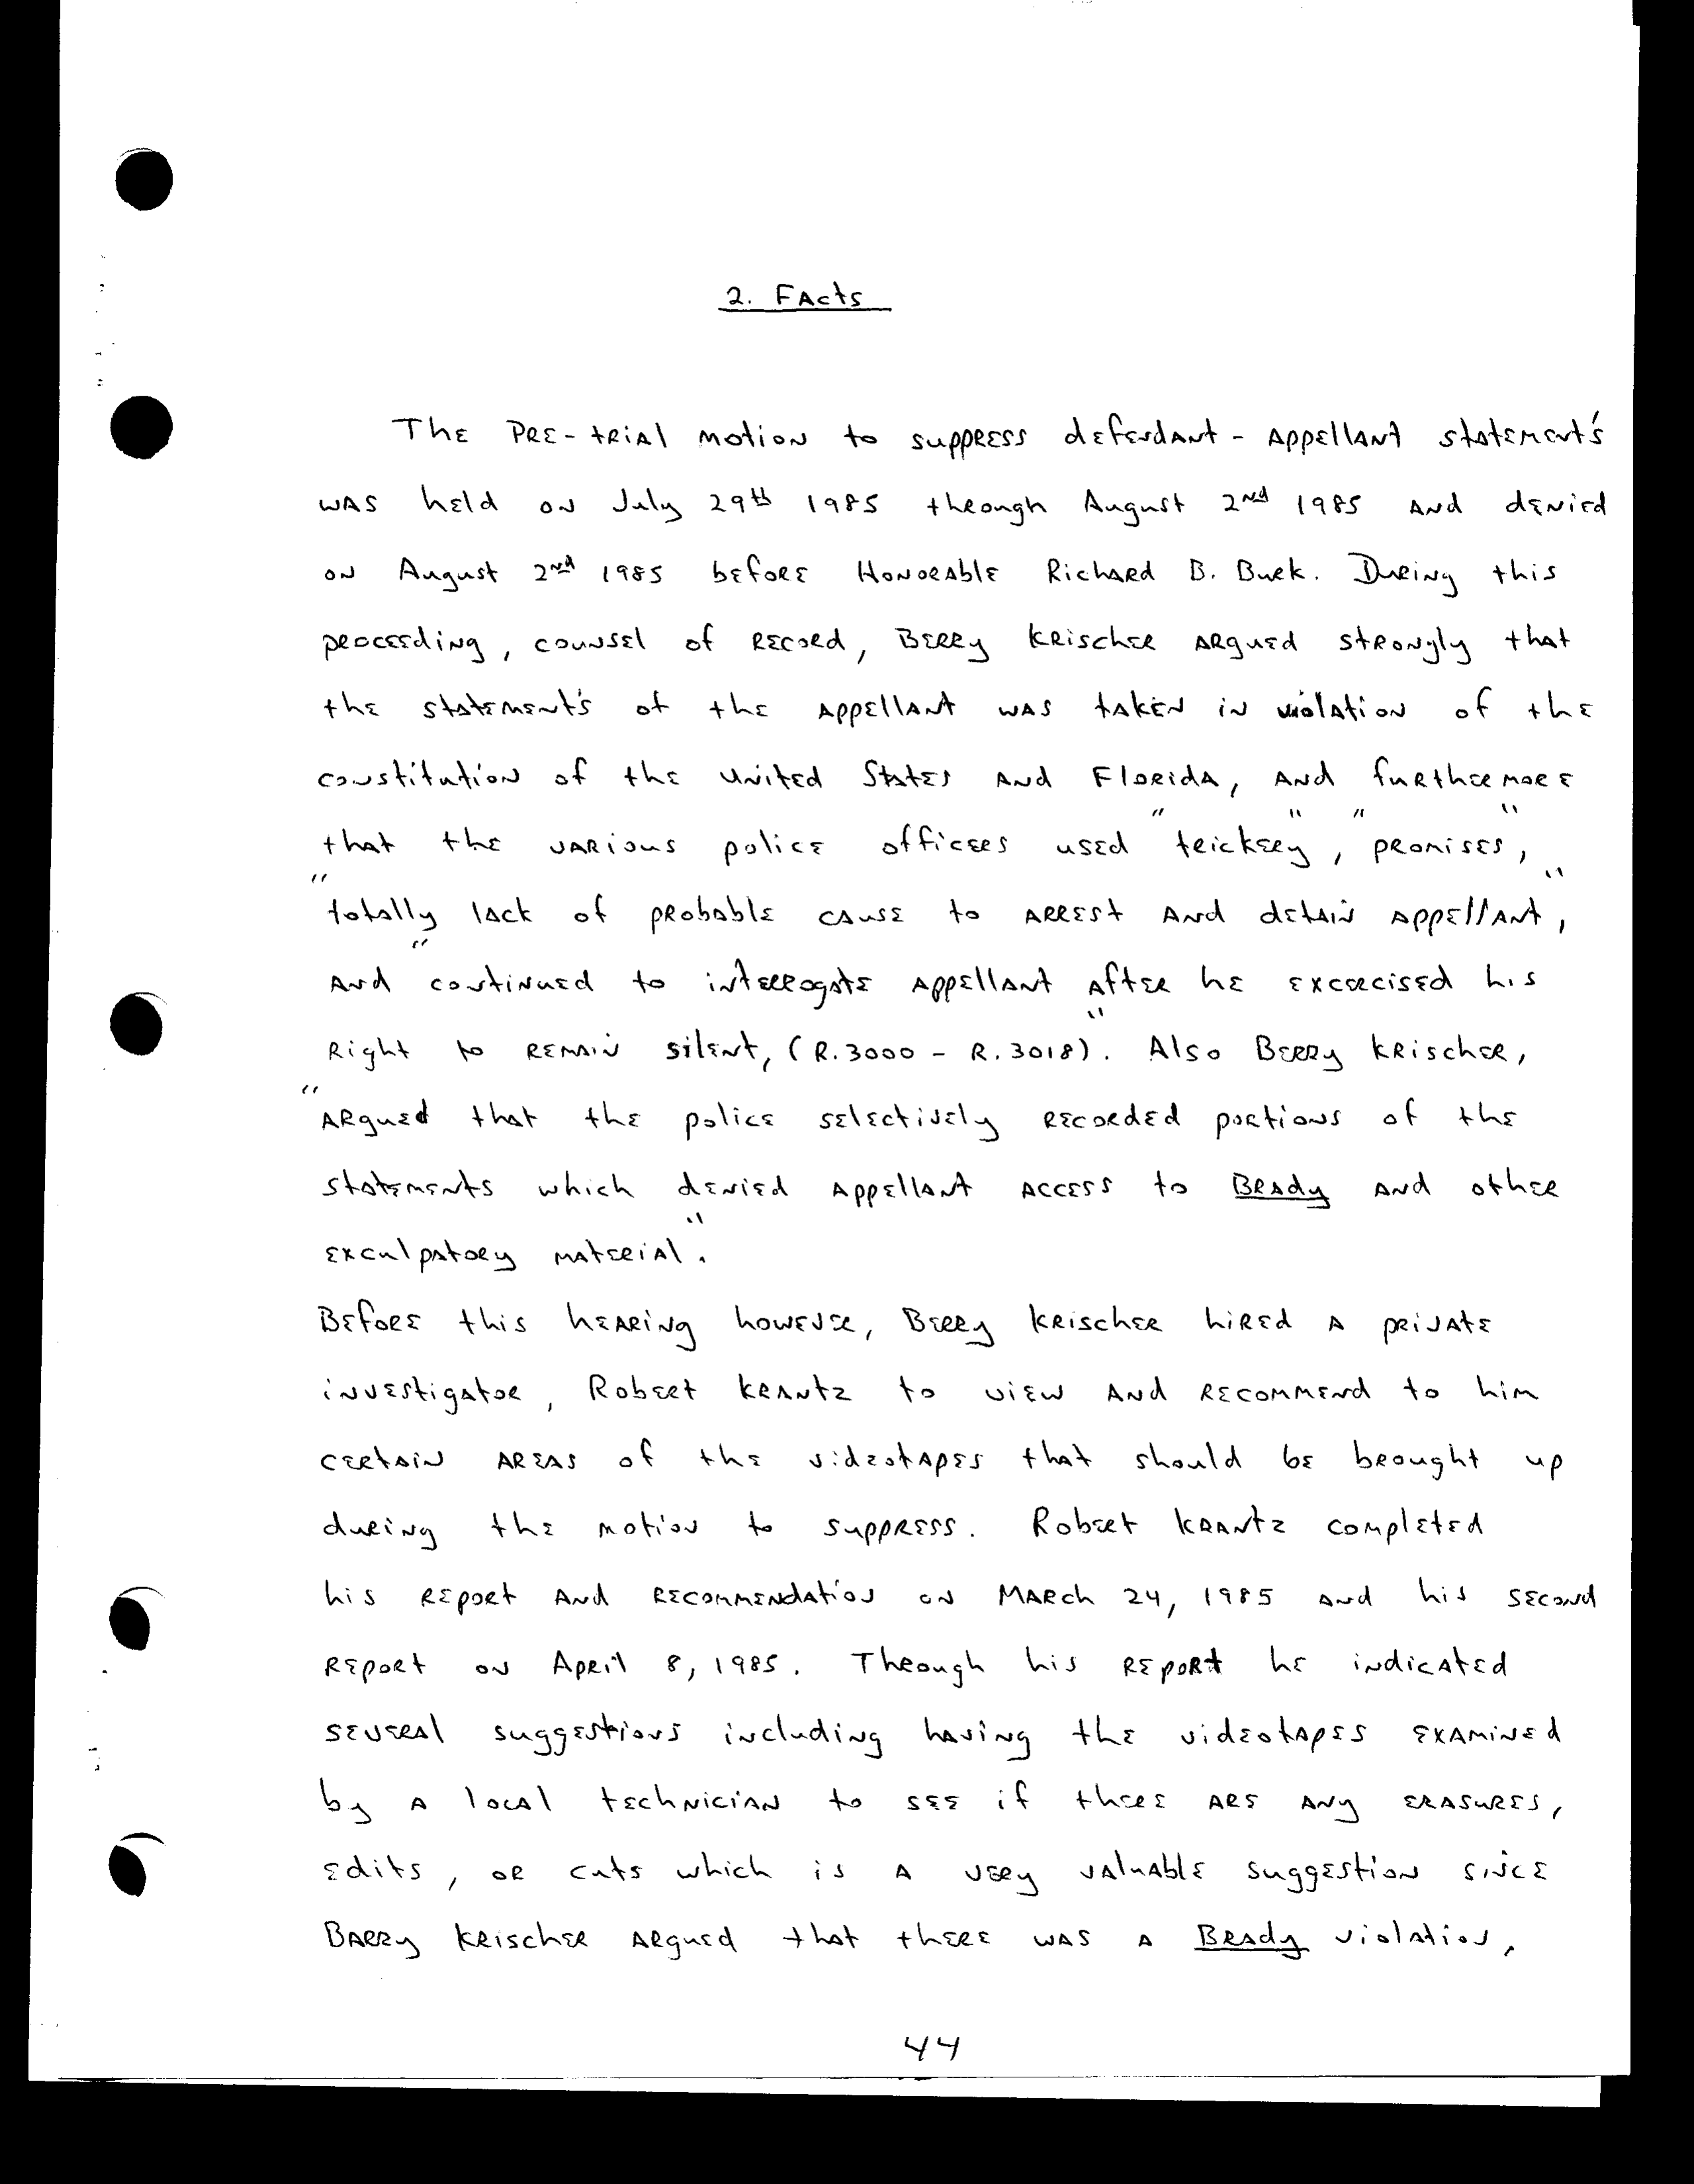 2. Facts
The pre-trial motion to suppress defendant - appellant statement's
was held on July 29th 1985 through August 2nd 1985 and denied
on August 2nd 1985 before Honorable Richard B. Burk. During this
proceeding, counsel of record, Berry Krischer argued strongly that
the statement's of the appellant was taken in violation of the
constitution of the United States and Florida, and furthermore
that the various police officers used "trickery", "promises",
"totally lack of probable cause to arrest and detain appellant",
and "continued to interrogate appellant after he excercised his
right to remain silent," (R.3000 - R.3018). Also Berry Krischer,
"argued that the police selectively recorded portions of the
statements which denied appellant access to Brady and other
exculpatory material".
Before this hearing however, Berry Krischer hired a private
investigator, Robert Krantz to view and recommend to him
certain areas of the videotapes that should be brought up
during the motion to suppress. Robert Krantz completed
his report and recommendation on March 24, 1985 and his second
report on April 8, 1985. Through his report he indicated
several suggestions including having the videotapes examined
by a local technician to see if there are any erasures,
edits, or cuts which is a very valuable suggestion since
Barry Krischer argued that there was a Brady violation,
44